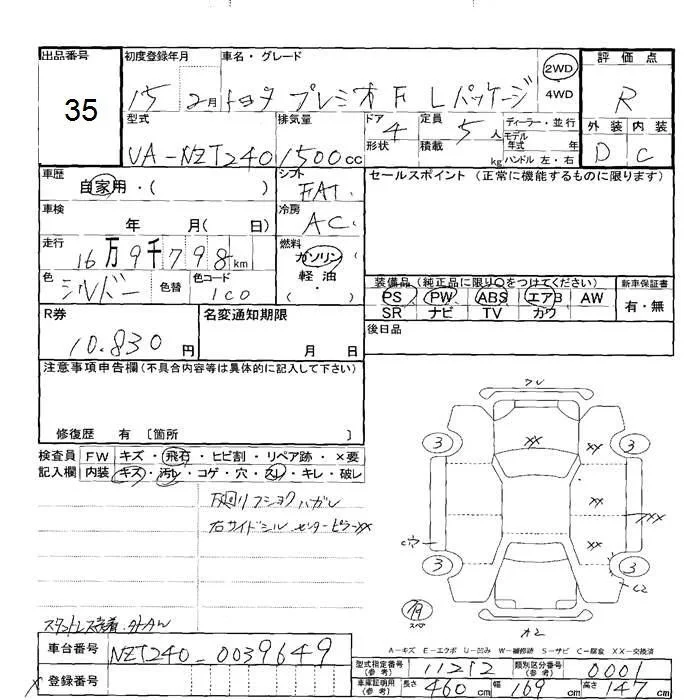 出品番号 初度登録年月 車名・グレード 評価点
35 15 2月 トヨタ プレミオ F Lパッケージ 2WD 4WD R
型式 排気量 ドア 形状 定員 積載 ディーラー・並行 外装 内装
UA-NZT240 1500cc 4 5人 kg モデル年式 年 ハンドル 左・右 D C
車歴 自家用・( ) シフト FAT セールスポイント(正常に機能するものに限ります)
車検 年 月( 日) 冷房 AC
走行 16万9千798km 燃料 ガソリン・軽油・( )
色 シルバー 色替 色コード 1C0
装備品(純正品に限り○をつけてください) 新車保証書
PS PW ABS エアB AW 有・無
SR ナビ TV カワ
R券 10.830円 名変通知期限 月 日 後日品
注意事項申告欄(不具合内容等は具体的に記入して下さい)
修復歴 有 〔箇所 〕
検査員 FW キズ・飛石・ヒビ割・リペア跡・×要
記入欄 内装 キズ・汚レ・コゲ・穴・スレ・キレ・破レ
下廻リフショクハガレ
右サイドシル センターピラーXX
フレ
XX XY
3 3
XX XXX
C穴 XX
3 3
C2
スペ
A2
スタットレス装着
A-キズ E-エクボ U-凹み W-補修跡 S-サビ C-腐食 XX-交換済
車台番号 NZT240-0039649
型式指定番号(参考) 11212 類別区分番号(参考) 0001
登録番号
車庫証明用(参考) 長さ 460cm 幅 169cm 高さ 147cm